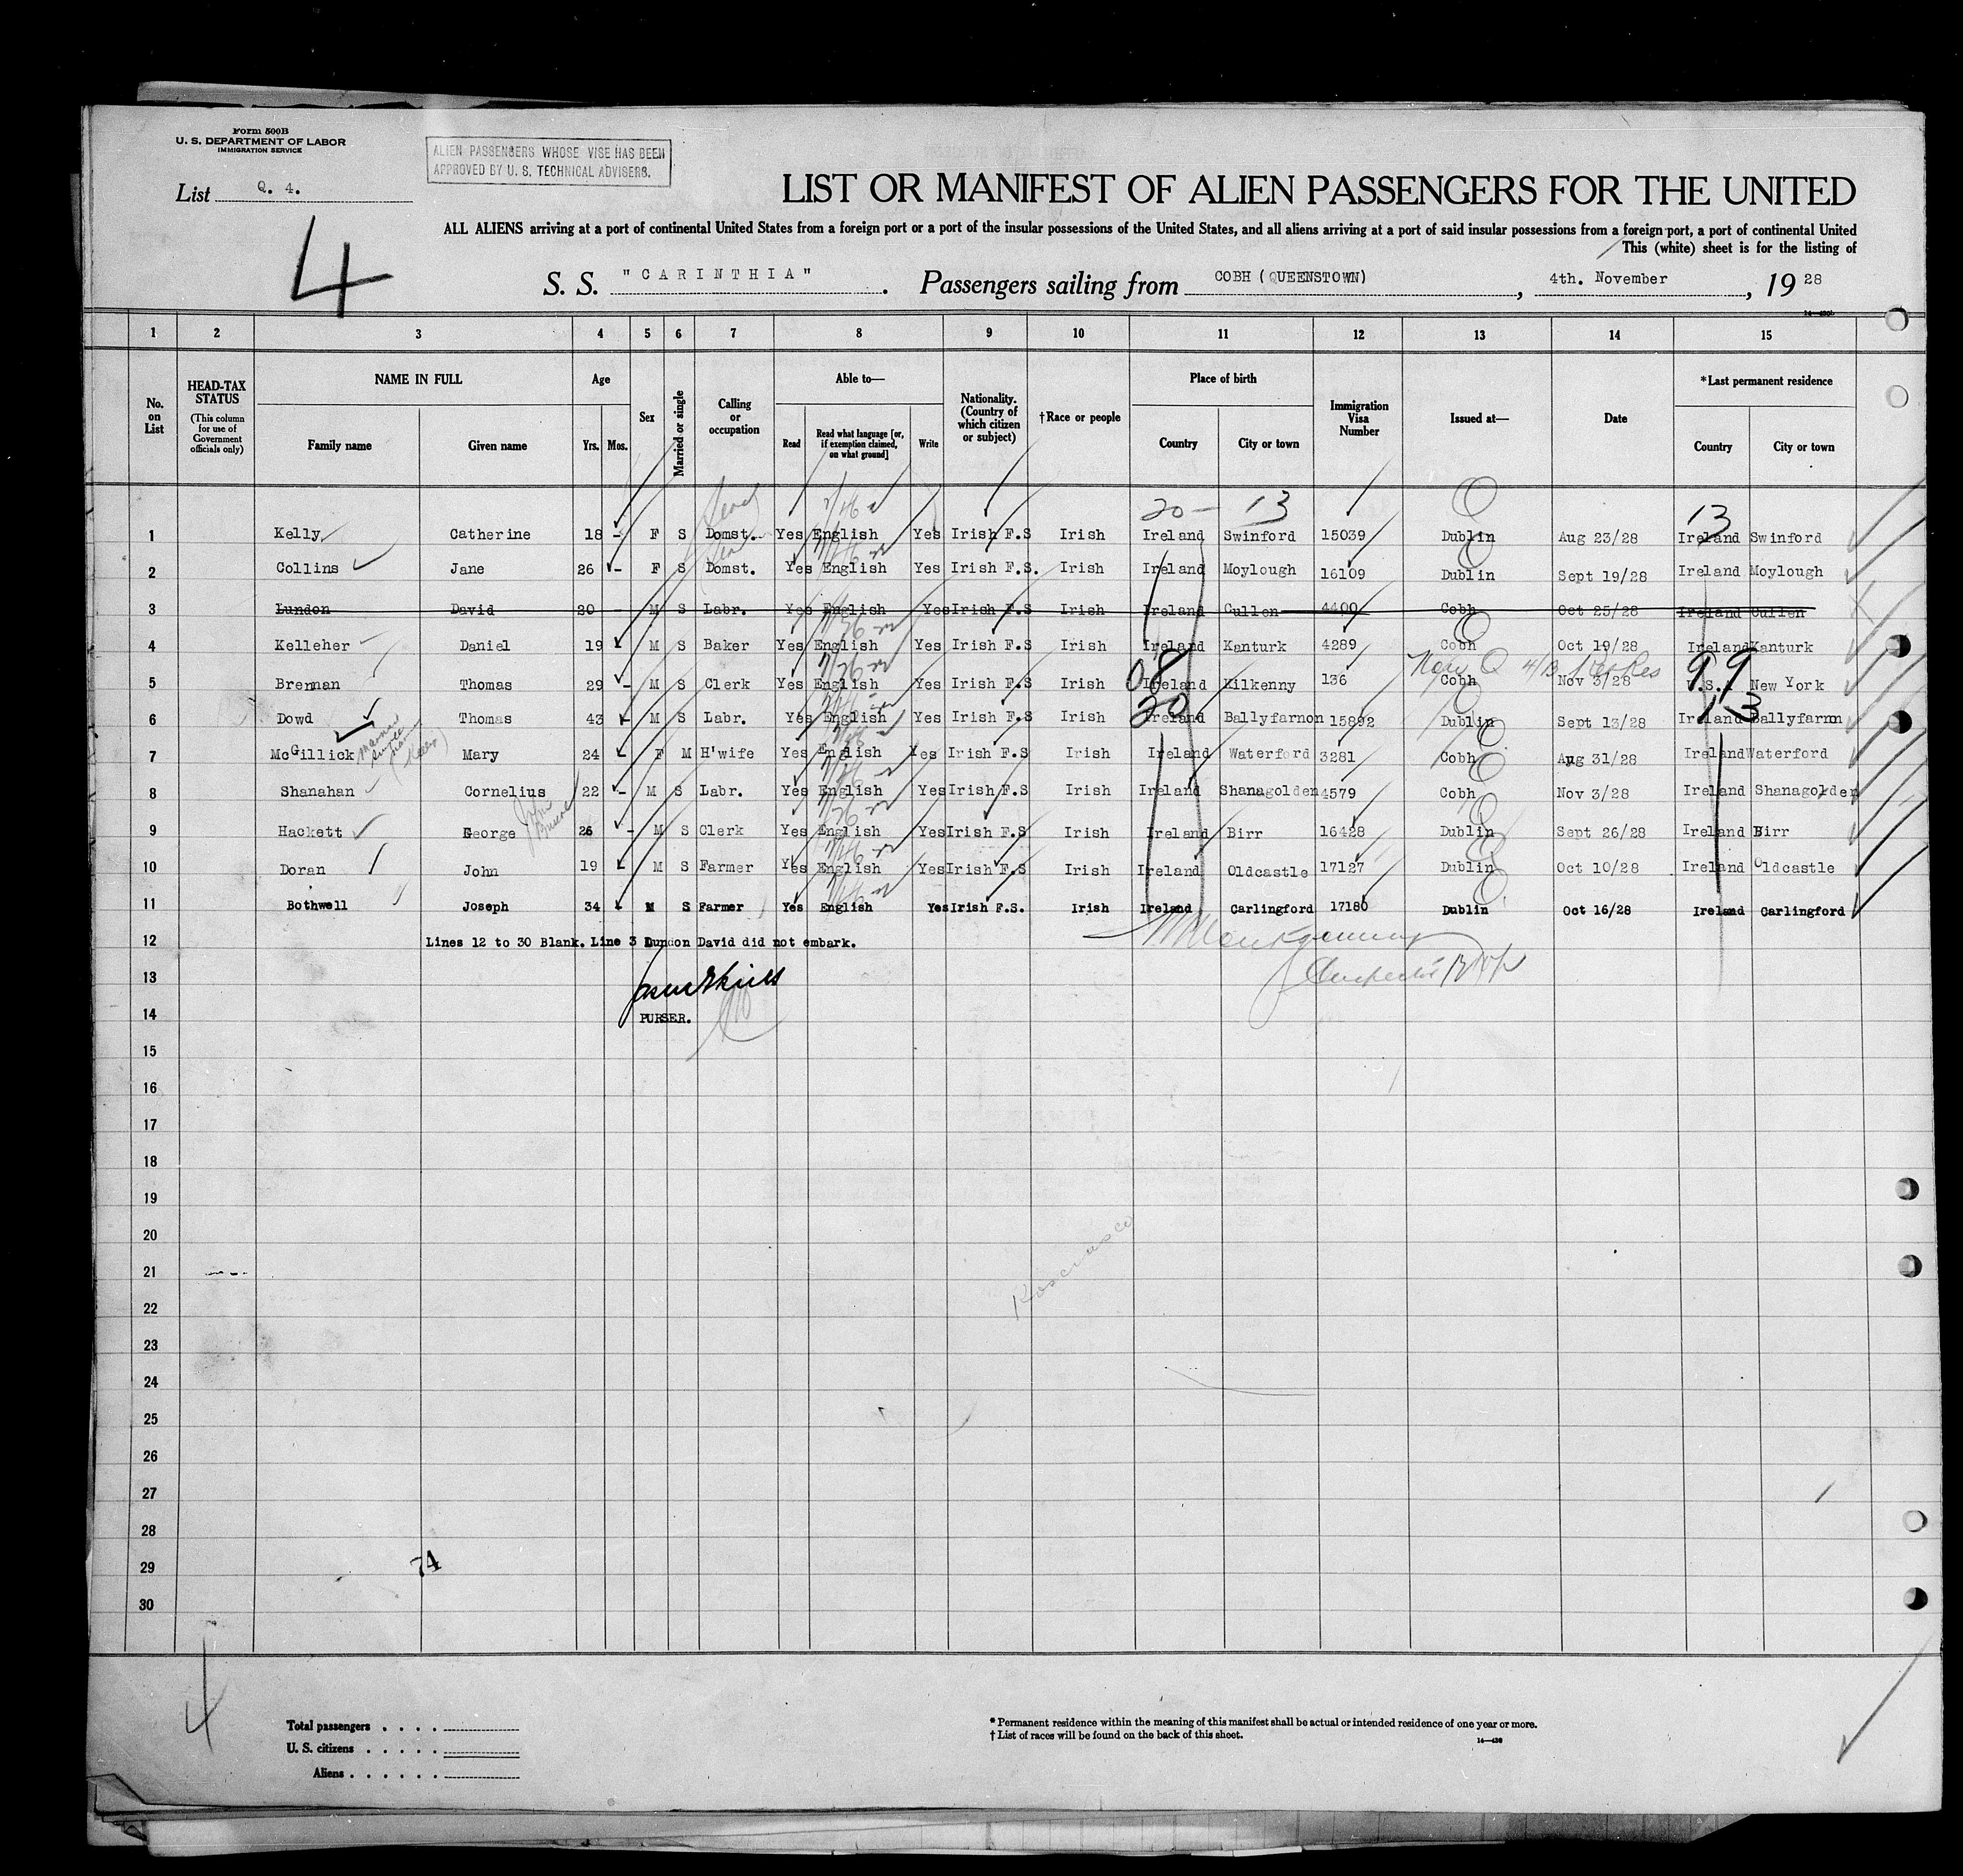 Form 500B
U. S. DEPARTMENT OF LABOR
IMMIGRATION SERVICE
ALIEN PASSENGERS WHOSE VISE HAS BEEN
APPROVED BY U. S. TECHNICAL ADVISERS.
List Q. 4.
4
LIST OR MANIFEST OF ALIEN PASSENGERS FOR THE UNITED
ALL ALIENS arriving at a port of continental United States from a foreign port or a port of the insular possessions of the United States, and all aliens arriving at a port of said insular possessions from a foreign port, a port of continental United
This (white) sheet is for the listing of
S. S. "CARINTHIA". Passengers sailing from COBH (QUEENSTOWN), 4th. November, 1928
1 2 3 4 5 6 7 8 9 10 11 12 13 14 15
No. on List
HEAD-TAX STATUS (This column for use of Government officials only)
NAME IN FULL
Family name Given name
Age
Yrs. Mos.
Sex
Married or single
Calling or occupation
Able to—
Read Read what language [or, if exemption claimed, on what ground] Write
Nationality. (Country of which citizen or subject)
†Race or people
Place of birth
Country City or town
Immigration Visa Number
Issued at—
Date
*Last permanent residence
Country City or town
20 - 13 13
1 Kelly Catherine 18 - F S Domst. Yes English Yes Irish F.S Irish Ireland Swinford 15039 Dublin Aug 23/28 Ireland Swinford
2 Collins Jane 26 - F S Domst. Yes English Yes Irish F.S. Irish Ireland Moylough 16109 Dublin Sept 19/28 Ireland Moylough
3 Lundon David 20 - M S Labr. Yes English Yes Irish F.S Irish Ireland Cullen 4400 Cobh Oct 25/28 Ireland Cullen
4 Kelleher Daniel 19 M S Baker Yes English Yes Irish F.S Irish Ireland Kanturk 4289 Cobh Oct 19/28 Ireland Kanturk
5 Brennan Thomas 29 - M S Clerk Yes English Yes Irish F.S Irish 08 Ireland Kilkenny 136 Cobh Nov 3/28 99 U.S.A New York
6 Dowd Thomas 43 - M S Labr. Yes English Yes Irish F.S Irish 20 Ireland Ballyfarnon 15892 Dublin Sept 13/28 13 Ireland Ballyfarnn
7 McGillick Mary 24 - F M H'wife Yes English Yes Irish F.S Irish Ireland Waterford 3281 Cobh Aug 31/28 Ireland Waterford
8 Shanahan Cornelius 22 - M S Labr. Yes English Yes Irish F.S Irish Ireland Shanagolden 4579 Cobh Nov 3/28 Ireland Shanagolden
9 Hackett George 26 - M S Clerk Yes English Yes Irish F.S Irish Ireland Birr 16428 Dublin Sept 26/28 Ireland Birr
10 Doran John 19 - M S Farmer Yes English Yes Irish F.S Irish Ireland Oldcastle 17127 Dublin Oct 10/28 Ireland Oldcastle
11 Bothwell Joseph 34 - M S Farmer Yes English Yes Irish F.S. Irish Ireland Carlingford 17180 Dublin Oct 16/28 Ireland Carlingford
12 Lines 12 to 30 Blank. Line 3 Lundon David did not embark.
13
14 PURSER.
15
16
17
18
19
20
21
22
23
24
25
26
27
28
29 74
30
4
Total passengers . . . .
U. S. citizens . . . . .
Aliens . . . . . .
* Permanent residence within the meaning of this manifest shall be actual or intended residence of one year or more.
† List of races will be found on the back of this sheet.
14—438